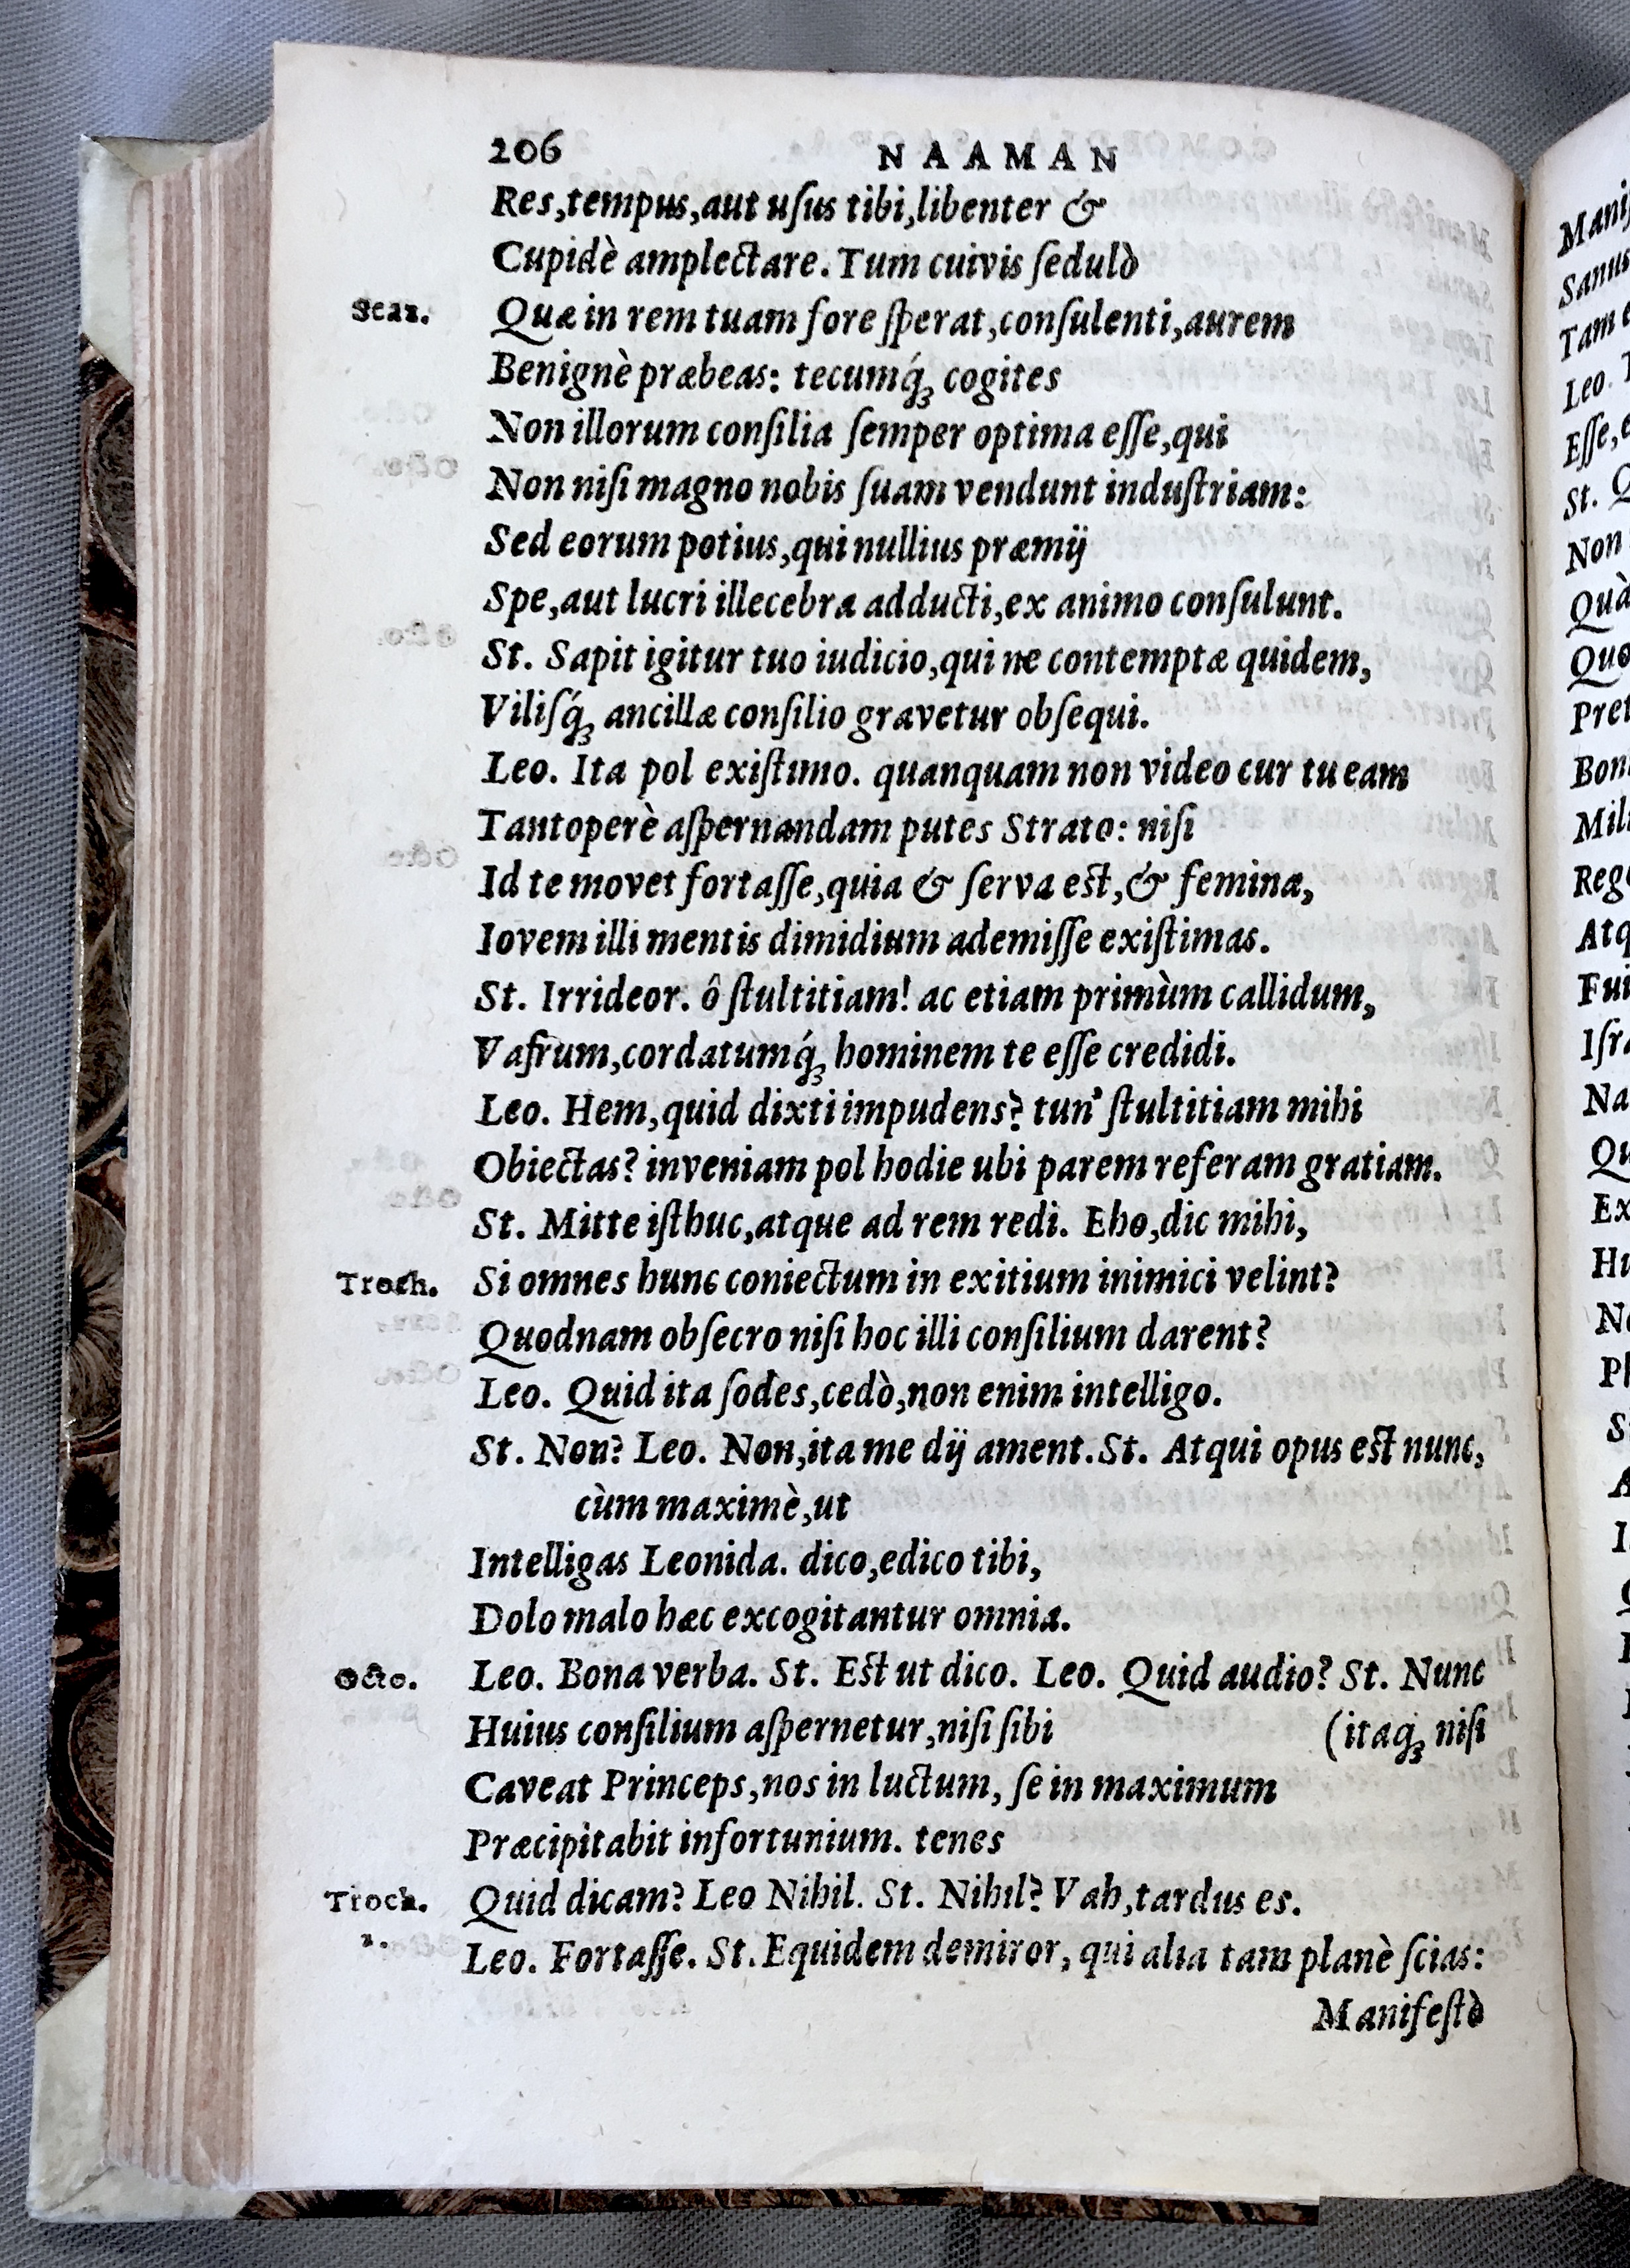 206 NAAMAN
Res,tempus,aut uſus tibi,libenter &
Cupidè amplectare. Tum cuivis ſedulò
Scaz. Quæ in rem tuam fore ſperat,conſulenti,aurem
Benignè præbeas: tecumq́ꝫ cogites
Non illorum conſilia ſemper optima eſſe,qui
Non niſi magno nobis ſuam vendunt induſtriam:
Sed eorum potius,qui nullius præmij
Spe,aut lucri illecebra adducti,ex animo conſulunt.
St. Sapit igitur tuo iudicio,qui ne contemptæ quidem,
Viliſq́ꝫ ancillæ conſilio gravetur obſequi.
Leo. Ita pol exiſtimo. quanquam non video cur tu eam
Tantoperè aſpernandam putes Strato: niſi
Id te movet fortaſſe,quia & ſerva eſt,& femina,
Iovem illi mentis dimidium ademiſſe exiſtimas.
St. Irrideor. ô ſtultitiam! ac etiam primùm callidum,
Vafrum,cordatumq́ꝫ hominem te eſſe credidi.
Leo. Hem,quid dixti impudens? tun' ſtultitiam mihi
Obiectas? inveniam pol hodie ubi parem referam gratiam.
St. Mitte iſthuc,atque ad rem redi. Eho,dic mihi,
Troch. Si omnes hunc coniectum in exitium inimici velint?
Quodnam obſecro niſi hoc illi conſilium darent?
Leo. Quid ita ſodes,cedò,non enim intelligo.
St. Non? Leo. Non,ita me dij ament. St. Atqui opus eſt nunc,
cùm maximè,ut
Intelligas Leonida. dico,edico tibi,
Dolo malo hæc excogitantur omnia.
Octo. Leo. Bona verba. St. Eſt ut dico. Leo. Quid audio? St. Nunc
Huius conſilium aſpernetur,niſi ſibi (itaqꝫ niſi
Caveat Princeps,nos in luctum, ſe in maximum
Præcipitabit infortunium. tenes
Troch. Quid dicam? Leo Nihil. St. Nihil? Vah,tardus es.
2. Leo. Fortaſſe. St. Equidem demiror, qui alia tam planè ſcias:
Manifeſtò
Sanus
Tam
Leo.
Eſſe,
St.
Non